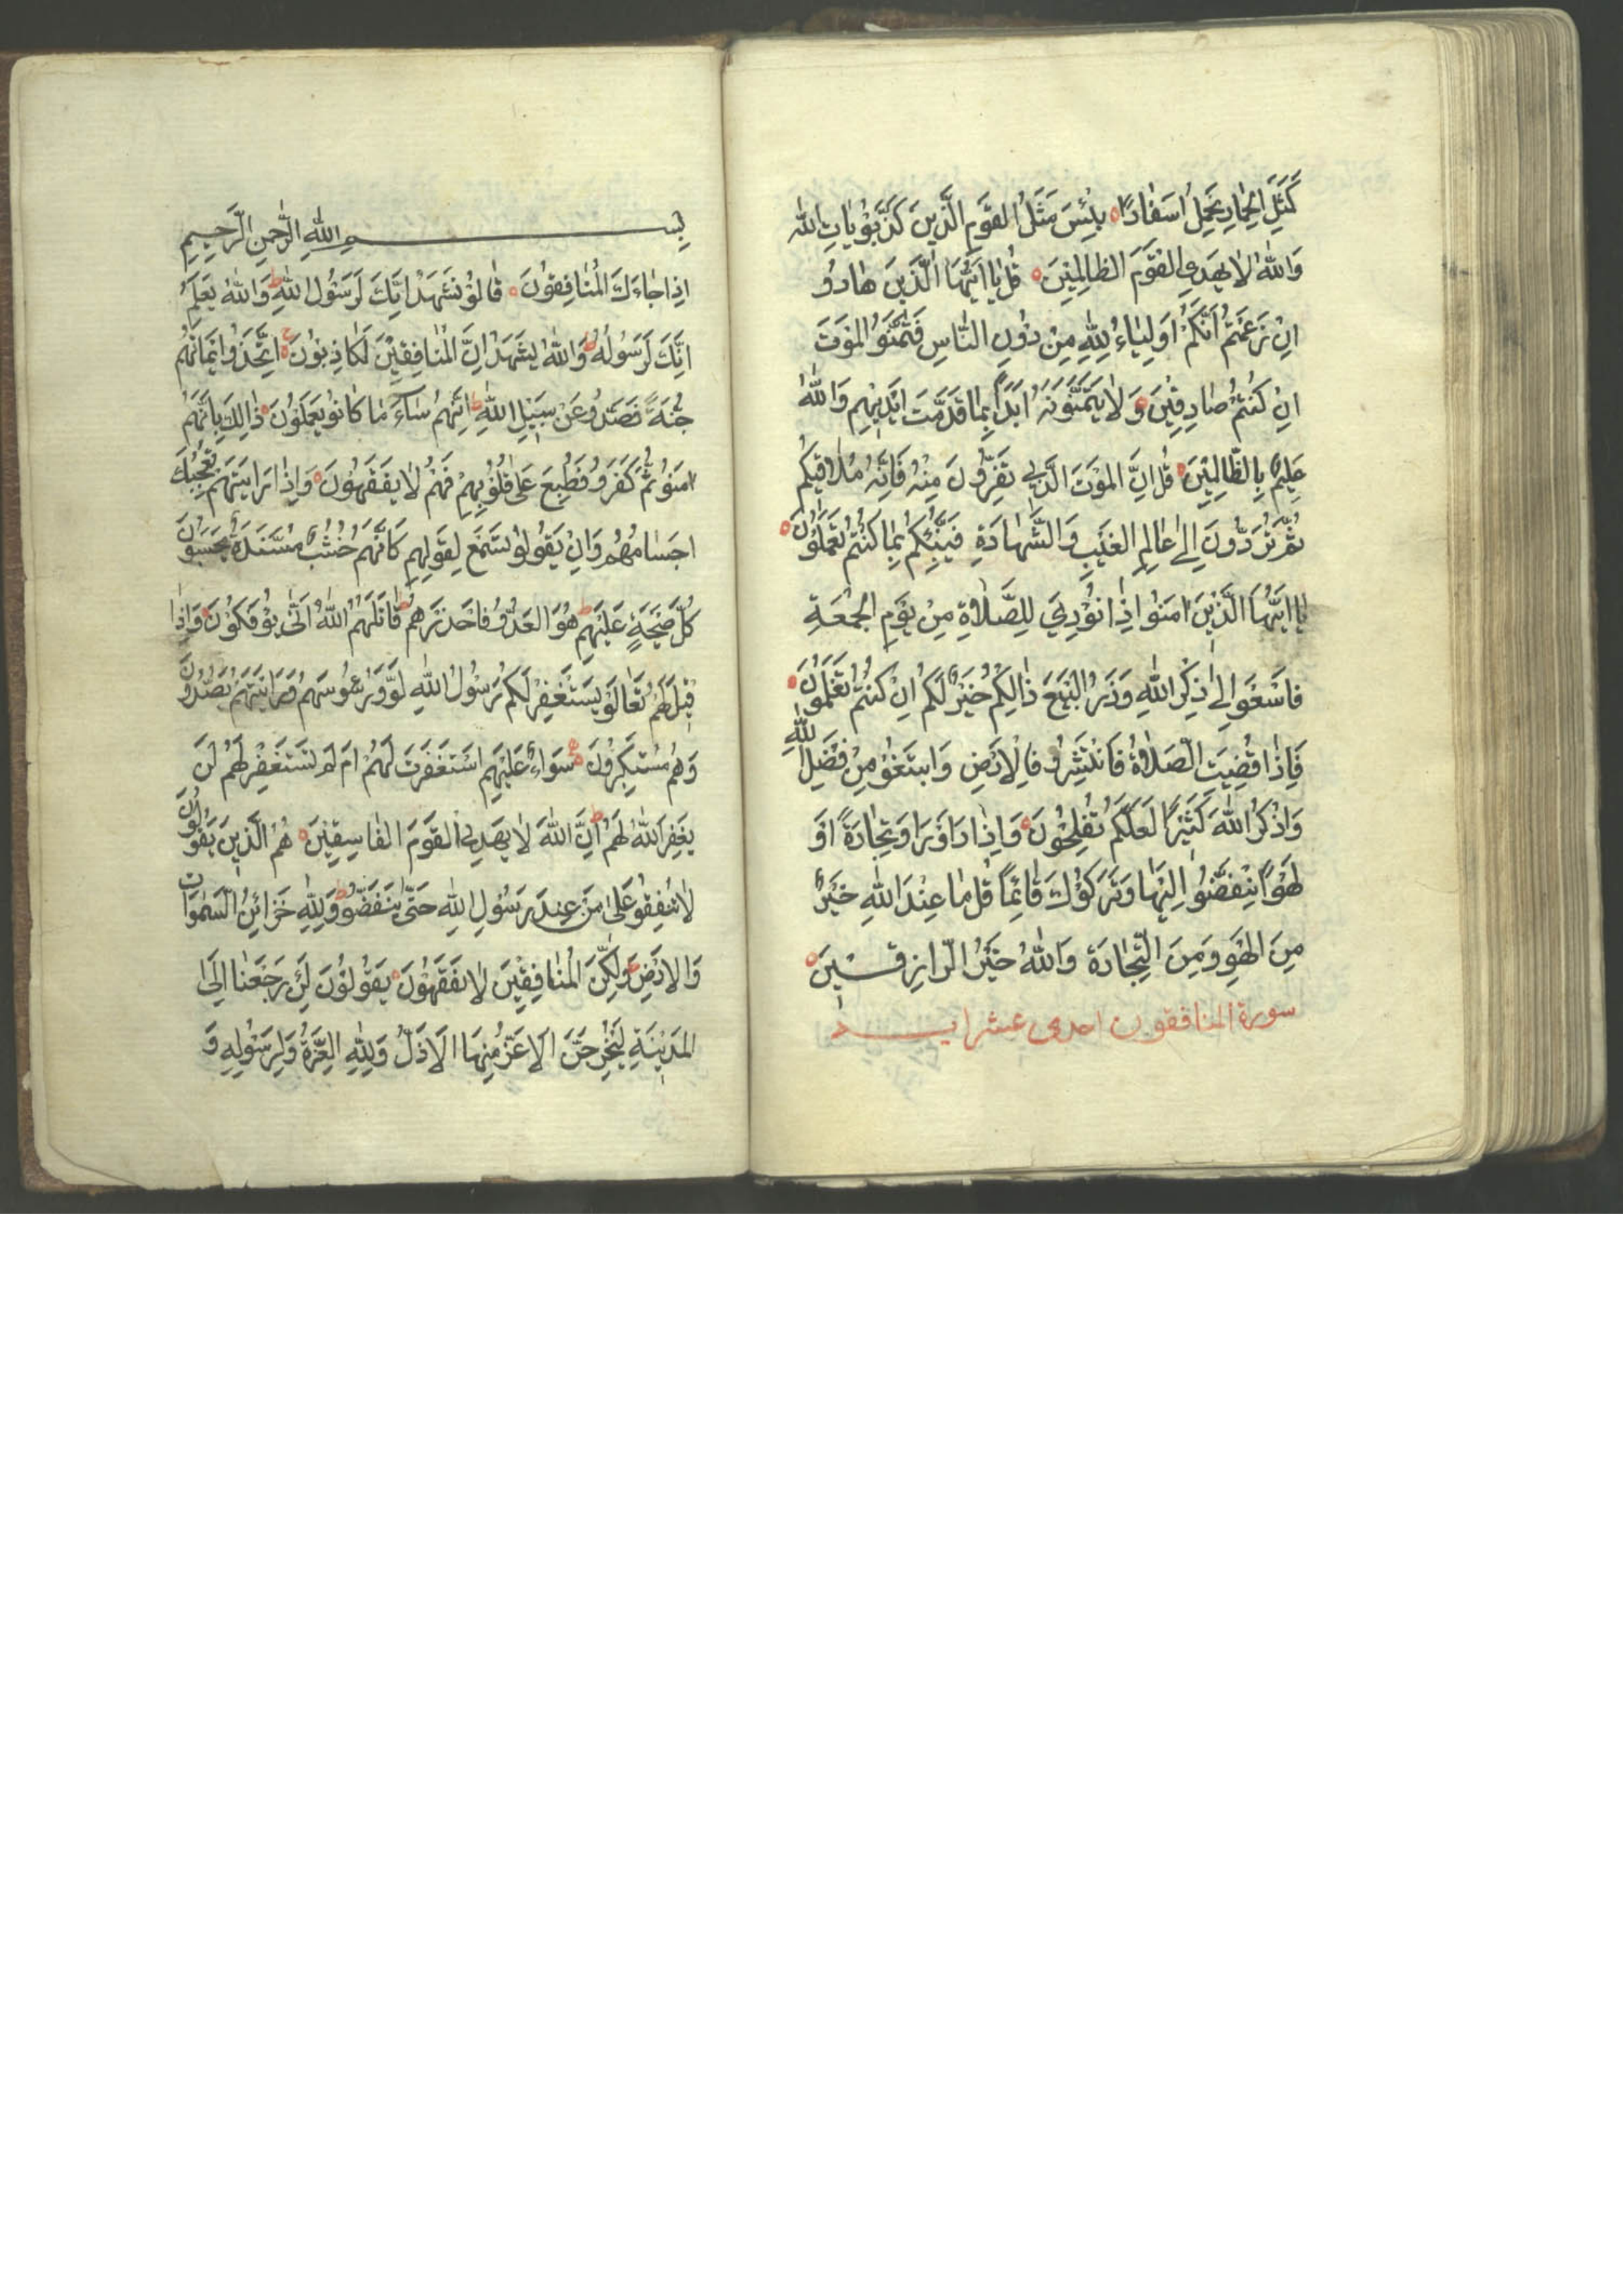 كَمَثَلِ الحِمَارِ يَحمِلُ اَسفَارًا بِئسَ مَثَلُ القَومِ الَّذِينَ كَذَّبُوْ بِاٰيَاتِ اللّٰه
وَاللّٰهُ لَا يَهدِى القَومَ الظَالِمِينَ قُل يَا اَيُّهَا الَّذِينَ هَادُوْ
اِن زَعَمتُم اَنَّكُم اَولِيَاءُ لِلّٰهِ مِن دُونِ النَّاسِ فَتَمَنَّوُا المَوتَ
اِن كُنتُم صَادِقِينَ وَلَا يَتَمَنَّونَهُ اَبَدًا بِمَا قَدَّمَت اَيدِيهِم وَاللّٰهُ
عَلِيمٌ بِالظَّالِمِينَ قُل اِنَّ المَوتَ الَّذِي تَفِرُّونَ مِنهُ فَاِنَّهُ مُلَاقِيكُم
ثُمَّ تُرَدُّونَ اِلىٰ عَالِمِ الغَيبِ وَالشَّهَادَةِ فَيُنَبِّئُكُم بِمَا كُنتُم تَعمَلُونَ
يَا اَيُّهَا الَّذِينَ اٰمَنُوا اِذَا نُودِيَ لِلصَّلَاوةِ مِن يَومِ الجُمعَةِ
فَاسْعَو اِلىٰ ذِكرِ اللّٰهِ وَذَرُ البَيعَ ذَالِكُم خَيرٌ لَّكُم اِن كُنتُم تَعلَمُونَ
فَاِذَا قُضِيَتِ الصَّلَاوةُ فَانتَشِرُو فِالاَرضِ وَابتَغُو مِن فَضلِ اللّٰهِ
وَاذكُرُ اللّٰهَ كَثِيرًا لَعَلَّكُم تُفلِحُونَ وَاِذَا رَاَوَرَا وَتِجَارَةً اَو
لَهوًا نِنفَضُّوا اِلَيهَا وَتَرَكُوكَ قَائِمًا قُل مَا عِندَ اللّٰهِ خَيرٌ
مِنَ الهَوِ وَمِنَ التِّجَارَة وَاللّٰهُ خَيرُ الرَّازِقِينَ
سورة المنافقون احدى عشر ايــة
بِســـــمِ اللّٰهِ الرَّحمنِ الرَّحِيمِ
اِذَا جَاءَكَ المُنَافِقُونَ قَالُو نَشهَدُ اِنَّكَ لَرَسُولُ اللّٰهِ وَاللّٰهُ يَعلَمُ
اِنَّكَ لَرَسُولُهُ وَاللّٰهُ يَشهَدُ اِنَّ المُنَافِقِينَ لَكَاذِبُونَ اِتَّخَذُوا اَيمَانَهُم
جُنَةً فَصَدُّو عَن سَبِيلِ اللّٰهِ اِنَّهُم سَاءَ مَا كَانُو يَعمَلُونَ ذَالِكَ بِاَنَّهُم
اٰمَنُو ثُمَّ كَفَرُو فَطُبِعَ عَلىٰ قُلُوبِهِم فَهُم لَا يَفقَهُونَ وَاِذَا رَاَيتَهُم تُعجِبُكَ
اَجسَامُهُم وَاِن يَقُولُو تَسمَع لِقَولِهِم كَاَنَّهُم خُشُبٌ مُسَنَّدَةٌ يَحسَبُونَ
كُلَّ صَيحَةٍ عَلَيهِم هُوَ العَدُوُّ فَاحذَرهُم قَاتَلَهُمُ اللّٰهُ اَنّٰى يُؤفَكُونَ وَاِذَا
قِيلَ لَهُم تَعَالَو يَستَغفِر لَكُم رَسُولُ اللّٰهِ لَوَّو رُءُوسَهُم وَرَاَيتَهُم يَصُدُّونَ
وَهُم مُستَكبِرُونَ سَوَاءٌ عَلَيهِم اَستَغفَرتَ لَهُم اَم لَم تَستَغفِر لَهُم لَن
يَغفِرَ اللّٰهُ لَهُم اِنَّ اللّٰهَ لَا يَهدِى القَومَ الفَاسِقِينَ هُمُ الَّذِينَ يَقُولُونَ
لَا تُنفِقُو عَلىٰ مَن عِندَ رَسُولِ اللّٰهِ حَتّٰى يَنفَضُّو وَلِلّٰهِ خَزَائِنُ السَّمٰوَات
وَالاَرضِ وَلٰكِنَّ المُنَافِقِينَ لَا يَفقَهُونَ يَقُولُونَ لَئِن رَجَعنَا اِلَى
المَدِينَةِ لَيُخرِجَنَّ الاَعَزُّ مِنهَا الاَذَلَّ وَلِلّٰهِ العِزَّةُ وَلِرَسُولِهِ وَ